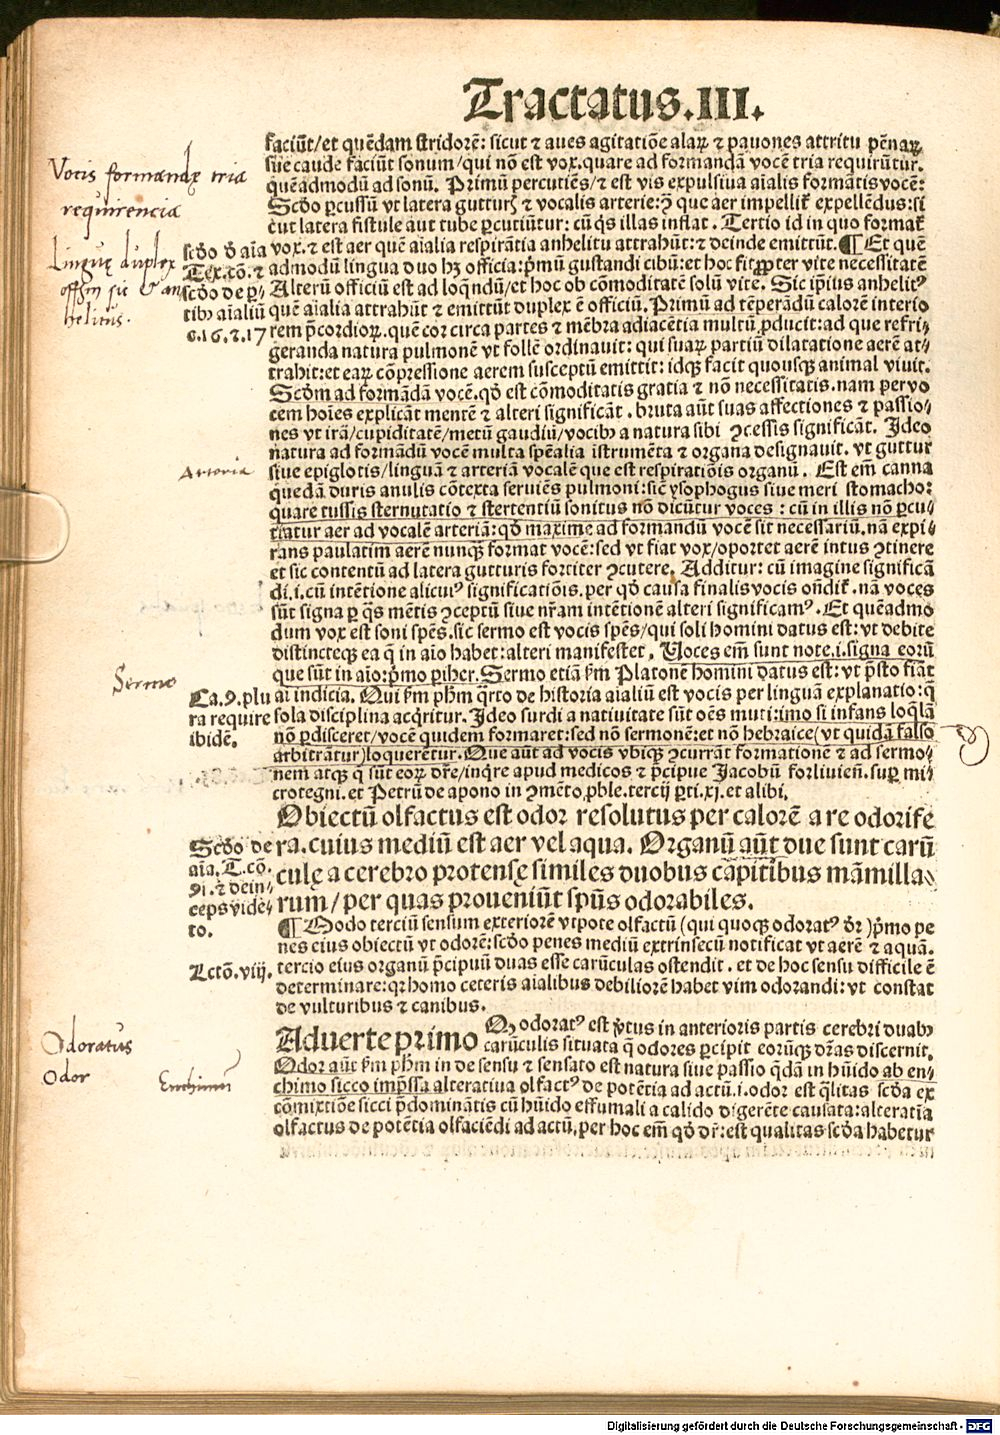 Tractatus.III.
faciūt/et quēdam stridorē: sicut ⁊ aues agitatiōe alaꝝ ⁊ pauones attritu pēnaꝝ
siue caude faciūt sonum/qui nō est vox.quare ad formandā vocē tria requirūtur.
Vocis formandę tria
requirencia
quēadmodū ad sonū. Primū percutiēs/⁊ est vis expulsiua aīalis formātis vocē:
Scđo ꝑcussū vt latera gutturꝭ ⁊ vocalis arterie: que aer impellit᷑ expellēdus:si
cut latera fistule aut tube ꝑcutiūtur: cū q̄s illas inflat. Tertio id in quo format᷑
Linguę duplex
offm sic & an
helitus.
scđo đ aīa
Tex.cō. ⁊
scđo de ꝑ-
tibꝫ aīaliū
c.16.⁊.17
vox.⁊ est aer quē aīalia respirātia anhelitu attrahūt:⁊ deinde emittūt.¶ Et quē
admodū lingua duo hꝫ officia:p̄mū gustandi cibū:et hoc fit ꝓpter vite necessitatē
Alterū officiū est ad loq̄ndū/et hoc ob cōmoditatē solū vite. Sic ip̄ius anhelitꝰ
quē aīalia attrahūt ⁊ emittūt duplex ē officiū. Primū ad tēperādū calorē interio
rem p̄cordioꝝ.quē cor circa partes ⁊ mēbra adiacētia multū ꝓducit:ad que refri-
geranda natura pulmonē vt follē ordinauit: qui suaꝝ partiū dilatatione aerē at-
trahit:et eaꝝ cōpressione aerem susceptū emittit: idqꝫ facit quousqꝫ animal viuit.
Scđm ad formādā vocē.qđ est cōmoditatis gratia ⁊ nō necessitatis.nam per vo
cem hoīes explicāt mentē ⁊ alteri significāt . bruta aūt suas affectiones ⁊ passio-
nes vt irā/cupiditatē/metū gaudiū/vocibꝫ a natura sibi ꝯcessis significāt. Ideo
natura ad formandū vocē multa spēalia īstrumēta ⁊ organa designauit. vt guttur
Arteria
siue epiglotis/linguā ⁊ arteriā vocalē que est respiratiōis organū. Est em̄ canna
quedā duris anulis cōtexta seruiēs pulmoni:sic̄ ysophogus siue meri stomacho:
quare tussis sternutatio ⁊ stertentiū sonitus nō dicūtur voces : cū in illis nō ꝑcu-
tiatur aer ad vocalē arteriā:qđ maxime ad formandū vocē sit necessariū.nā expi-
rans paulatim aerē nunqꝫ format vocē:sed vt fiat vox/oportet aerē intus ꝯtinere
et sic contentū ad latera gutturis fortiter ꝯcutere. Additur: cū imagine significā
di.i.cū intētione alicuiꝰ significatiōis.per qđ causa finalis vocis oñdit᷑. nā voces
sūt signa ꝑ q̄s mētis ꝯceptū siue nr̄am intētionē alteri significamꝰ. Et quēadmo
dum vox est soni spēs.sic sermo est vocis spēs/qui soli homini datus est: vt debite
distincteqꝫ ea q̄ in aīo habet:alteri manifestet. Uoces em̄ sunt note.i.signa eorū
Sermo
que sūt in aīo:p̄mo ꝑiher. Sermo etiā ẜm Platonē homini datus est: vt p̄sto fiāt
Ca.9.plu
ra require
ibidē.
aī indicia. Qui ẜm ph̄m q̄rto de historia aīaliū est vocis per linguā explanatio:q̄
sola disciplina acq̄ritur. Ideo surdi a natiuitate sūt oēs muti:imo si infans loq̄lā
nō ꝑdisceret/vocē quidem formaret:sed nō sermonē:et nō hebraice(vt quidā falso
arbitrātur)loqueretur. Que aūt ad vocis vbiqꝫ ꝯcurrāt formationē ⁊ ad sermo-
nem atqꝫ q̄ sūt eoꝝ dr̄e/inq̄re apud medicos ⁊ p̄cipue Jacobū forliuien̄.suꝑ mi-
crotegni.et Petrū de apono in ꝯmēto ꝓble.tercij ꝑti.xj.et alibi.
Obiectū olfactus est odor resolutus per calorē a re odorife
Scđo de
aīa.T.cō.
91.⁊ dein-
ceps vide-
to.
ra.cuius mediū est aer vel aqua. Organū aūt due sunt carū
culę a cerebro protensę similes duobus capitibus māmilla-
rum/per quas proueniūt spūs odorabiles.
¶ Modo terciū sensum exteriorē vtpote olfactū (qui quoqꝫ odoratꝰ đr )p̄mo pe
nes eius obiectū vt odorē:scđo penes mediū extrinsecū notificat vt aerē ⁊ aquā.
Lctō.viij.
tercio eius organū p̄cipuū duas esse carūculas ostendit. et de hoc sensu difficile ē
determinare:qꝛ homo ceteris aīalibus debiliorē habet vim odorandi: vt constat
de vulturibus ⁊ canibus.
Aduerte primo
Odoratus
Qꝫ odoratꝰ est v̄tus in anterioris partis cerebri duabꝫ
carūculis situata q̄ odores ꝑcipit eorūqꝫ dr̄as discernit.
Odor
Enchimum
Odor aūt ẜm ph̄m in de sensu ⁊ sensato est natura siue passio q̄dā in hūido ab en-
chimo sicco imp̄ssa alteratiua olfactꝰ de potētia ad actū.i.odor est q̄litas scđa ex
cōmixtiōe sicci p̄dominātis cū hūido effumali a calido digerēte causata:alteratīa
olfactus de potētia olfaciēdi ad actū.per hoc em̄ qđ dr̄:est qualitas scđa habetur
Digitalisierung gefördert durch die Deutsche Forschungsgemeinschaft - DFG